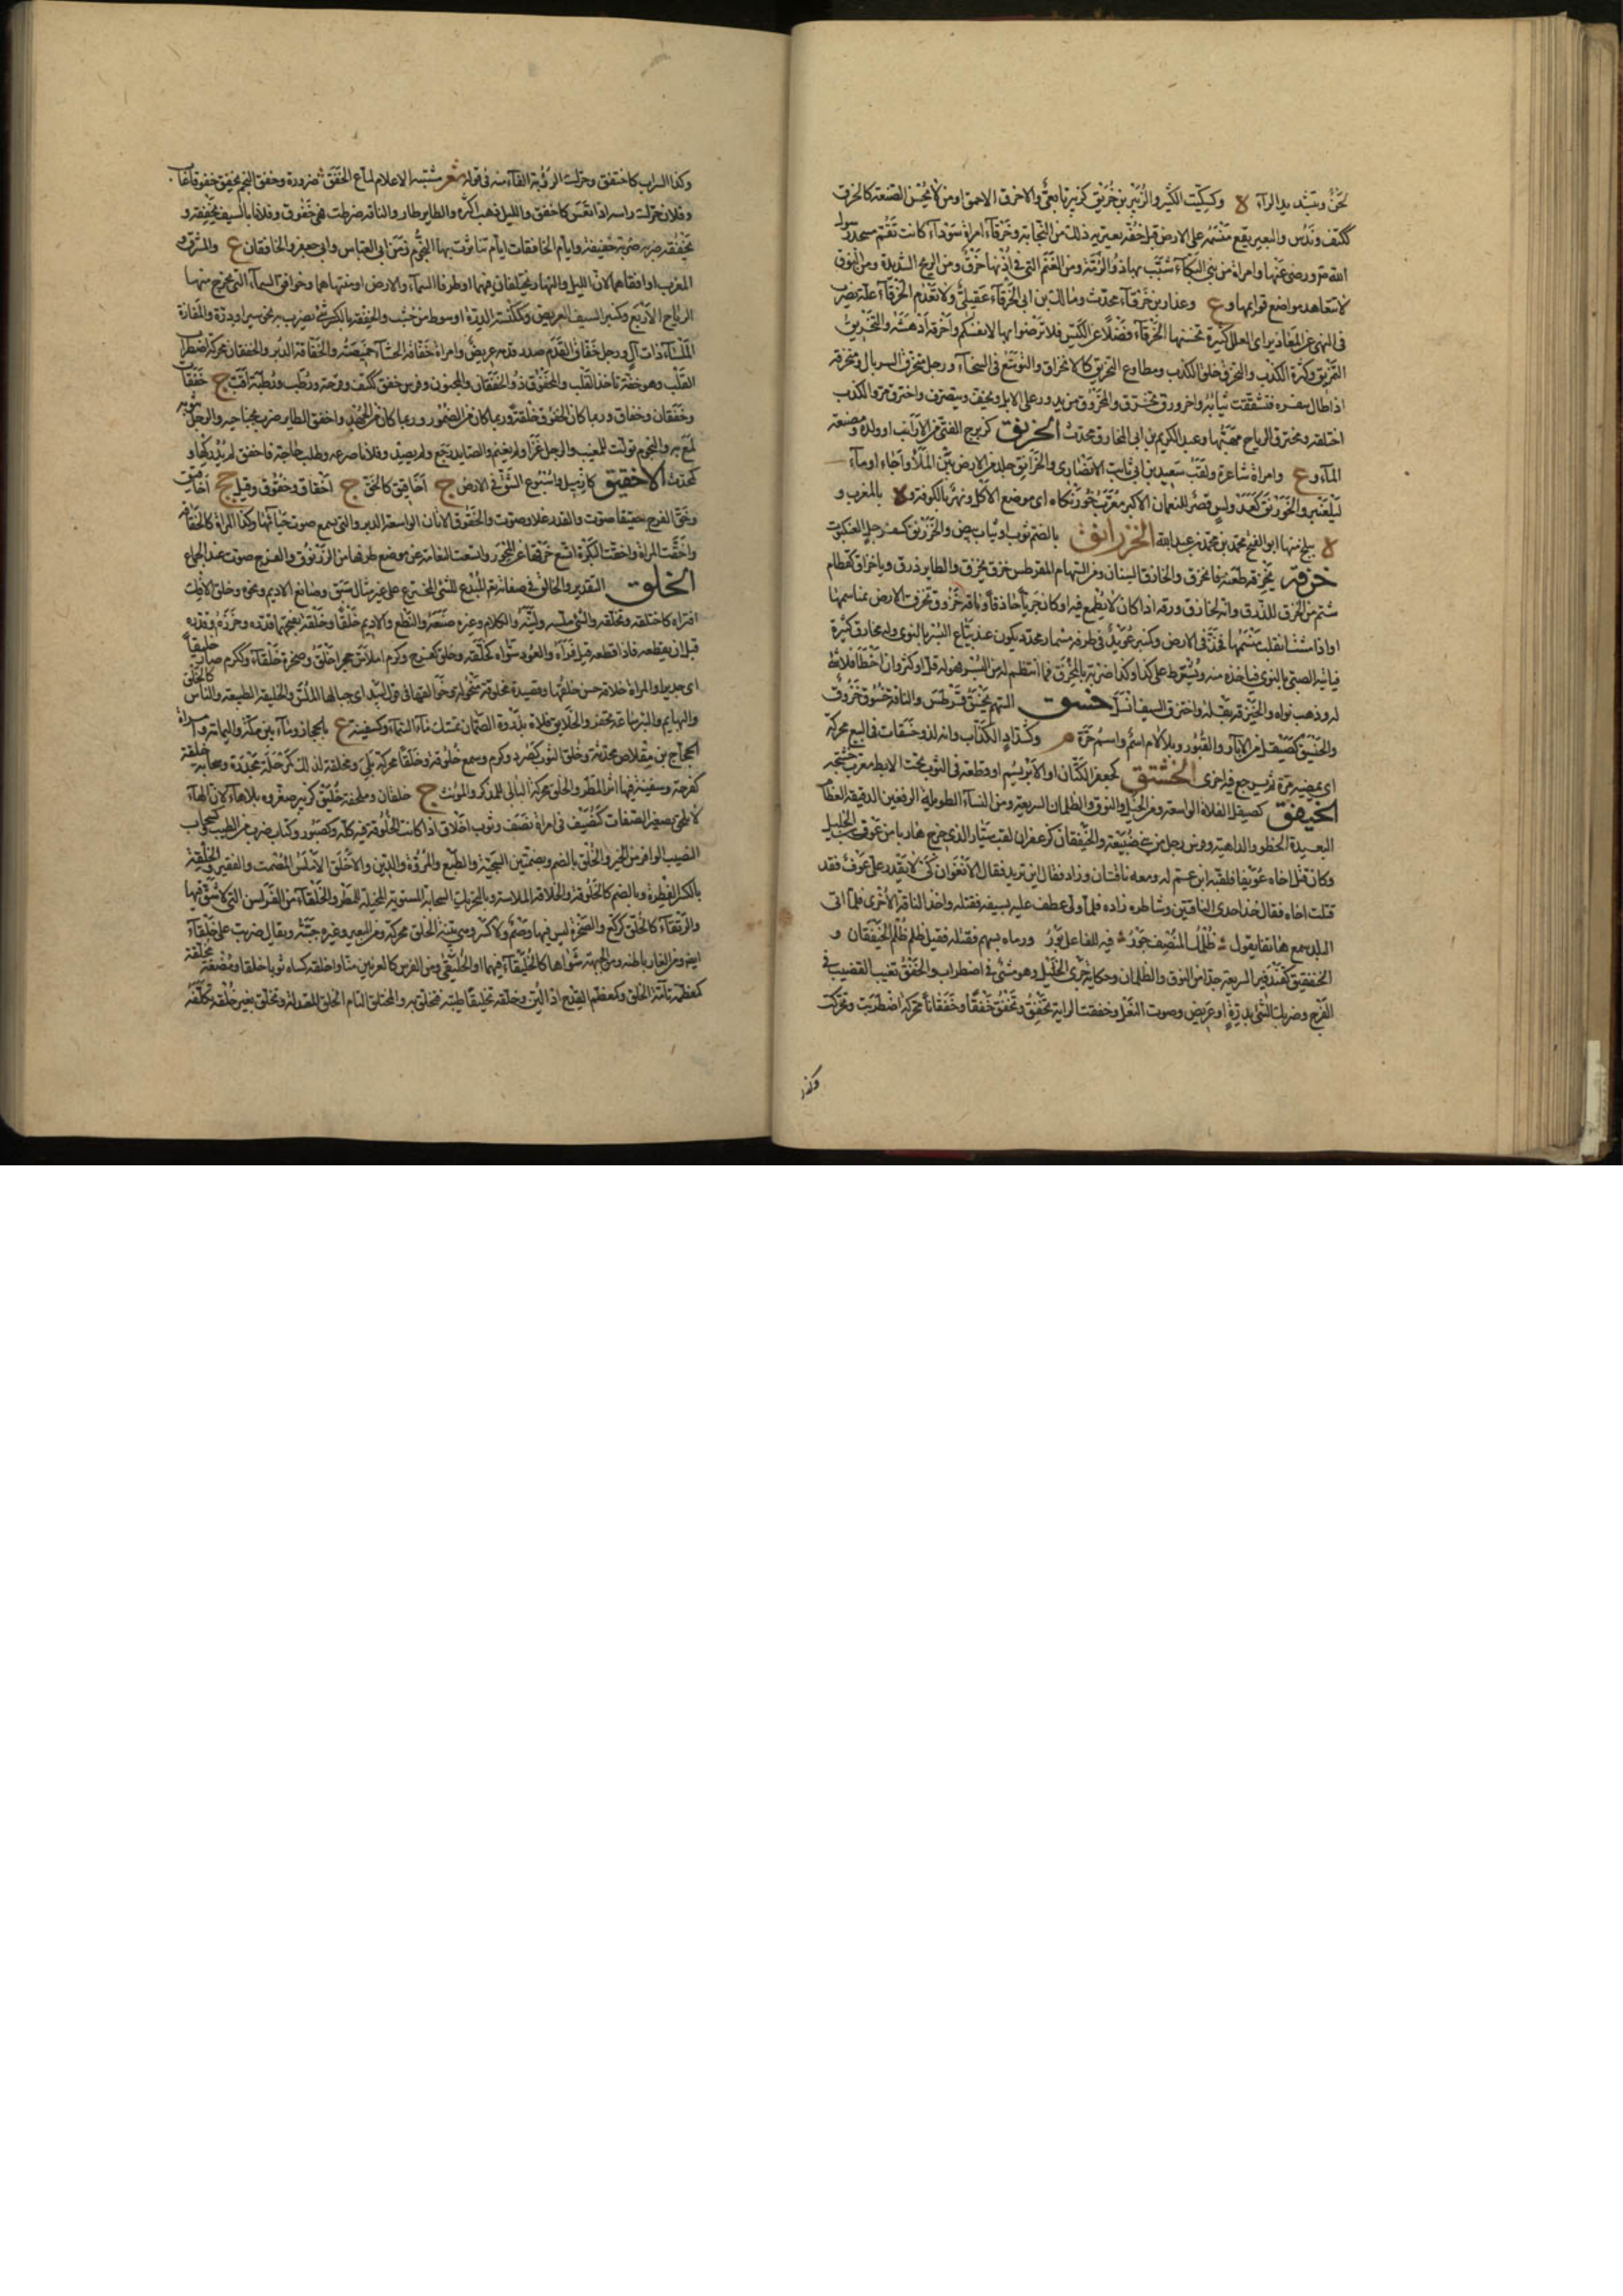 لحن وتشديد الرآء ة وكسكيت الكثير والزبير بن خريق كزبير تابعي والاخرق الاحمق او من لا يحسن الصنعة كالخرق
ككتف وندس والبعير يقع منسمه على الارض قبل خفه يعتريه ذلك من النجابة وخرقآء امراة سودآء كانت تقم مسجد رسول
الله ورضى عنها وامراة من بنى البكآء شبب بها ذو الرمة ومن الغنم التى فى اذنها خرق ومن الريح الشديدة ومن النوق
لا تتعاهد مواضع قوايمها وع وعذار بن خرقآء محدث ومالك بن ابى الخرقآء عقيلى ولا تعدم الخرقآء علة يضرب
فى النهى عن المعاذير اى العلل كثيرة تحسنها الخرقآء فضلا عن الكيس فلا ترضوا بها لانفسكم واخرقه ادهشه والتخريق
التمزيق وكثرة الكذب والتخرق خلق الكذب ومطاوع التخريق كالانخراق والتوسع فى السخآء ورجل متخرق السربال ومنخرقه
اذا طال سفره فتشققت ثيابه واخرورق تخرق والمخرورق من يدور على الابل ويخف ويتصرف واخترق مر والكذب
اختلقه ومخترق الرياح مهبها وعبد الكريم بن ابى المخارق محدث الخرنق كزبرج الفتى من الارانب او ولده ومصنعة
المآء وع وامراة شاعرة ولقب سعيد بن ثابت الانصارى والخرانق جلد من الارض بين الملا واجاء او مآء
لبلعنبر والخورنق كفدوكس قصر للنعمان الاكبر معرب خورنكاه اى موضع الاكل ونهر بالكوفة ود بالمغرب و
ة ببلخ منها ابو الفتح محمد بن محمد بن عبد الله الخزرانق بالضم ثوب او ثياب بيض والخزرنق كسفرجل العنكبوت
خزقه يخزقه طعنه فانخزق والخازق السنان ومن السهام المقرطس خزق يخزق والطاير ذرق ويا خزاق كقطام
شتم من الخزق للذرق وانه لخازق ورقه اذا كان لا يطمع فيه او كان جريا حاذقا وناقة خزوق تخزق الارض بمناسمها
او اذا مشت انقلب منسمها فخد فى الارض وكمنبر عويد فى طرفه مسمار محدد يكون عند بياع البسر بالنوى وله مخازق كثيرة
فياتيه الصبى بالنوى فياخذه منه ويشترط على كذا وكذا ضربة بالمخزق فما انتظم له من البسر فهو له قل او كثر وان اخطا فلا شئ
له وذهب نواه والخيزقة بقلة واخترق السيف انسل خسق السهم يخسق قرطس والناقة خسوق خزوق
والخيسق كصيقل من الابآر والقبور وبلا لام اسم واسم حرة م وكشداد الكذاب وانه لذو خسقات فى البيع محركة
اى يمضيه مرة ثم يرجع فيه اخرى الخشتق كجعفر الكتان او الابريسم او قطعة فى الثوب تحت الابط معرب خشتچه
الخيفق كصيقل الفلاة الواسعة ومن الخيل والنوق والظلمان السريعة ومن النسآء الطويلة الرفغين الدقيقة العظام
البعيدة الخطو والداهية وفرس رجل من بنى ضبيعة والخيفقان كزعفران لقب سيار الذى خرج هاربا من عوف بن الخليل
وكان قتل اخاه عويفا فلقيه ابن عم له ومعه ناقتان وزاد فقال اين تريد فقال الاشعوان كى لا يقدر على عوف فقد
قتلت اخاه فقال خذ احدى الناقتين وشاطره زاده فلما ولى عطف عليه بسيفه فقتله واخذ الناقة الاخرى فلما اتى
البلد سمع هاتفا يقول ظلمك المنصف جور فيه للفاعل بور ورماه بسهم فقتله فقيل ظلم ظلم الخيفقان و
الخنفقيق كقندفير السريعة جدا من النوق والظلمان وحكاية جرى الخيل وهو مشى فى اضطراب والخفق تغييب القضيب فى
الفرج وضربك الشئ بدرة او عريض وصوت النعل وخفقت الراية تخفق وتخفق خفقا وخفقانا محركة اضطربت وتحركت
وكذا
وكذا السراب كاختفق وحركت الرؤبة القآء منه فى قوله شعر مشتبه الاعلام لماع الخفق ضرورة وخفق النجم يخفق خفوقا غاب
وفلان حركت راسه اذا نعس كاخفق والليل ذهب اكثره والطاير طار والناقة ضرطت فهى خفوق وفلانا بالسيف يخفقه و
يخفقه ضربه ضربة خفيفة وايام الخافقات ايام تناثرت بها النجوم زمن ابى العباس وابى جعفر والخافقان ع والمشرق و
المغرب او افقاهما لان الليل والنهار يختلفان فيهما او طرفا السمآء والارض او منتهاهما وخوافق السمآء التى تخرج منها
الرياح الاربع وكمنبر السيف العريض وكمكنسة الدرة او سوط من خشب والخفقة بالكسر شئ يضرب به نحو سير او درة والمفازة
الملسآء ذات آل ورجل خفاق القدم صدر قدمه عريض وامراة خفاقة الحشآ خميصته والخفاقة الدبر والخفقان محركة اضطراب
القلب وهو خفة تاخذ القلب والمخفوق ذو الخفقان والمجنون وفرس خفق ككتف وفرحة ورطب ورطبة اقب ج خفقات
وخفقان وخفاق وربما كان الخفوق خلقة وربما كان من الضمور وربما كان من الجهد واخفق الطاير ضرب بجناحيه والرجل بثوبه
لمع به والنجوم تولت للمغيب والرجل غزا ولم يغنم والصايد رجع ولم يصد وفلانا صرعه وطلب حاجة فاخفق لم يدركها و
كمحدث الاخقيق كازميل واسبوع الشق فى الارض ج اخاقيق كالخق ج اخقاق وخقوق وقيل جج اخاقيق
وخق الفرج خقيقا صوت والقدر غلا وصوت والخقوق الاتان الواسعة الدبر والتى يسمع صوت حيائها وكذا المراة كالخقاقة
واخقت المراة واخقت البكرة اتسع خرقها عن المحور واتسعت النعامة عن موضع طرفها من الزرنوق والفرج صوت عند الجماع
الخلق التقدير والخالق فى صفاته تعم المبدع للشئ المخترع على غير مثال سبق وصانع الاديم ونحوه وخلق الافك
افتراه كاختلقه وتخلقه والشئ ملسه ولينه والكلام وغيره صنعه والنطع والاديم خلقا وخلقة بفتحهما قدره وحزره او قدره
قبل ان يقطعه فاذا قطعه قيل فراه والعود سواه كخلقه وخلق كفرح وكرم املاس وحجر اخلق وصخرة خلقآء وككرم صار خليقا
اى جديرا والمراة خلاقة حسن خلقها وقصيدة مخلوقة منحولة وخوالقها فى قول لبيد اى جبالها الملس والخليقة الطبيعة والناس كالخلق
والبهايم والبئر ساعة تحفر والخلايق قلات بذروة الصمان تمسك مآء السمآء وكسفينة ع بالحجاز ومآء بين مكة واليمامة وامراة
الحجاج بن مقلاص محدثة وخلق الثوب كنصر وكرم وسمع خلوقة وخلقا محركة بلى ومخلقة لذلك كمرحلة مجدرة وسحابة خلقة
كفرحة وسفينة فيها اثر المطر والخلق محركة البالى للمذكر والمونث ج خلقان وملحفة خليق كزبير صغروه بلا هآء لان الهآء
لا تلحق تصغير الصفات كنصيف فى امراة نصف وثوب اخلاق اذا كانت الخلوقة فيه كله وكصبور وكتاب ضرب من الطيب وكسحاب
النصيب الوافر من الخير والخلق بالضم وبضمتين السجية والطبع والمروة والدين والاخلق الاملس المصمت والفقير والخلقة
بالكسر الفطرة وبالضم كالخلوقة والخلاقة الملاسة وبالتحريك السحابة المستوية المخيلة للمطر والخلقآء من الفراسن التى لا شق فيها
والرتقآء كالخلق كركع والصخرة ليس فيها وصم ولا كسر وهى بينة الخلق محركة ومن البعير وغيره جنبه ويقال ضربت على خلقآء
ايضا ومن الغار باطنه ومن الجبهة مستواها كالخليقآء فيهما او الخليقى ومن الفرس كالعرنين منا واخلقه كساه ثوبا خلقا ومضغة مخلقة
كمعظمة تآمة الخلق وكمعظم القدح اذا لين وخلقه تخليقا طيبه فتخلق به والمختلق التام الخلق المعتدله وتخلق بغير خلقه تكلفه